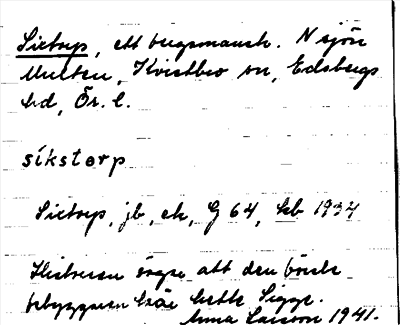 Sixtorp, ett bergsmansh. N sjön
Multen, Kvistbro sn, Edsbergs
hd, Ör. l.
síkstorp
Sixtorp, jb, ek, G 64, kb 1934
Historien säger att den förste
bebyggaren här hette Sigge.
Anna Larsson 1941.